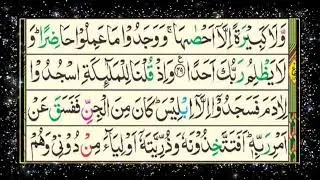 وَّلَا كَبِيْرَةً اِلَّاۤ اَحْصٰىهَا ۚ وَوَجَدُوْا مَا عَمِلُوْا حَاضِرًا ؕ وَ
لَا يَظْلِمُ رَبُّكَ اَحَدًا ﴿۴۹﴾ وَاِذْ قُلْنَا لِلْمَلٰٓئِكَةِ اسْجُدُوْا
لِاٰدَمَ فَسَجَدُوْۤا اِلَّاۤ اِبْلِيْسَ ؕ كَانَ مِنَ الْجِنِّ فَفَسَقَ عَنْ
اَمْرِ رَبِّهٖ ؕ اَفَتَتَّخِذُوْنَهٗ وَذُرِّيَّتَهٗۤ اَوْلِيَآءَ مِنْ دُوْنِيْ وَهُمْ